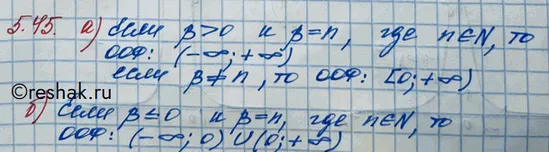 5.45. а) Если β>0 и β=n, где n∈N, то
ООФ: (-∞; +∞)
если β≠n, то ООФ: [0; +∞)
б) Если β≤0 и β=n, где n∈N, то
ООФ: (-∞; 0) ∪ (0; +∞)
©reshak.ru